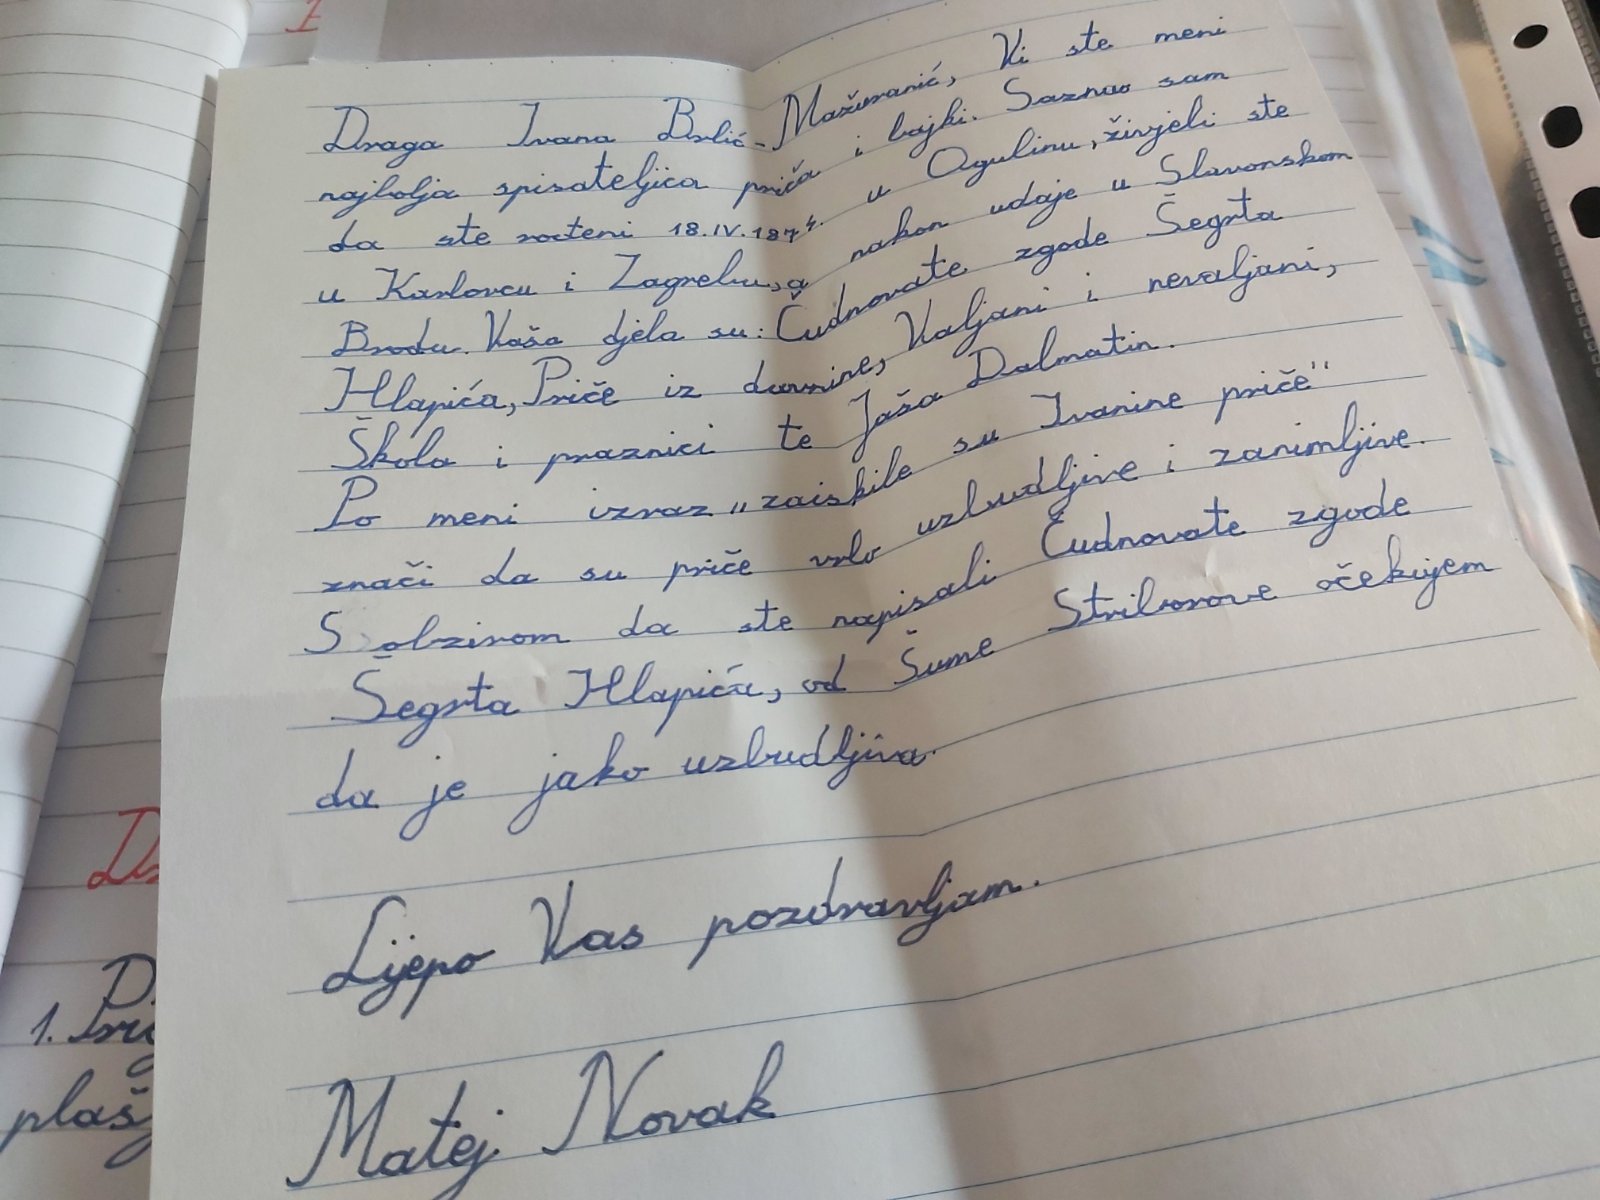 Draga Ivana Brlić-Mažuranić, Vi ste meni
najbolja spisateljica priča i bajki. Saznao sam
da ste rođeni 18.IV.1874. u Ogulinu, živjeli ste
u Karlovcu i Zagrebu, a nakon udaje u Slavonskom
Brodu. Vaša djela su: Čudnovate zgode Šegrta
Hlapića, Priče iz davnine, Valjani i nevaljani,
Škola i praznici te Jaša Dalmatin.
Po meni izraz „zaiskile su Ivanine priče"
znači da su priče vrlo uzbudljive i zanimljive.
S obzirom da ste napisali Čudnovate zgode
Šegrta Hlapića, od Šume Strilvorove očekujem
da je jako uzbudljiva.
Lijepo Vas pozdravljam.
Matej Novak
1.
plaš